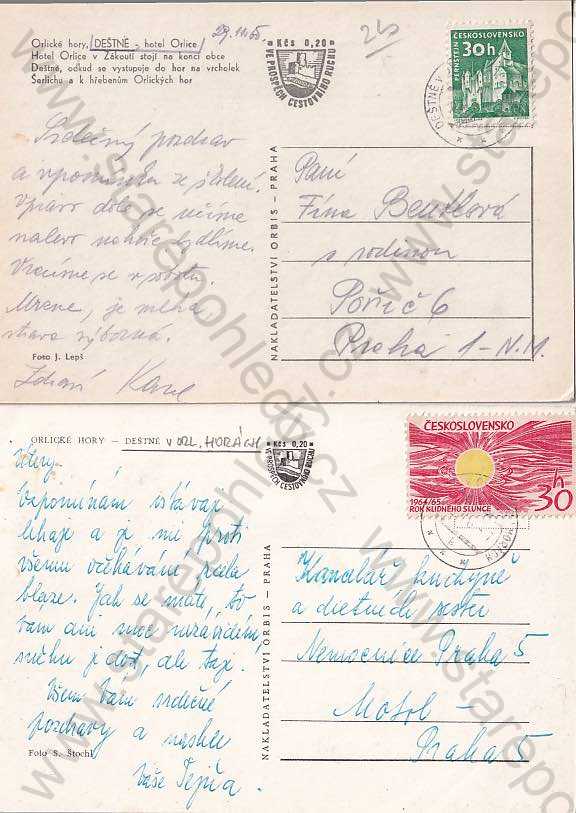 Orlické hory, DEŠTNÉ - hotel Orlice
Hotel Orlice v Zákoutí stojí na konci obce
Deštné, odkud se vystupuje do hor na vrcholek
Šerlichu a k hřebenům Orlických hor
29.III.65.
Kčs 0,20
VE PROSPĚCH CESTOVNÍHO RUCHU
ČESKOSLOVENSKO
30h
PERNŠTEJN
DEŠTNÉ V
Srdečný pozdrav
a vzpomínku ze školení.
Vpravo dole se učíme
nalevo nahoře bydlíme.
Vracíme se v sobotu.
Mrzne, je mlha
strava výborná.
Zdraví Karel
Foto J. Lepš
NAKLADATELSTVÍ ORBIS - PRAHA
Paní
Fína Beutlová
s rodinou
Poříč 6
Praha 1 - N.M.
ORLICKÉ HORY — DEŠTNÉ v ORL. HORÁCH
Kčs 0,20
VE PROSPĚCH CESTOVNÍHO RUCHU
ČESKOSLOVENSKO
1964/65
ROK KLIDNÉHO SLUNCE
30h
Úterý
Vzpomínám
lehaje a je mi proti
všemu očekávání zcela
blaze. Jak se máte, to
vám ani moc nezávidím
sněhu je dost, ale taje!
Všem Vám srdečné
pozdravy a nashle
Vaše Pepča.
Foto S. Štochl
NAKLADATELSTVÍ ORBIS - PRAHA
Kancelář kuchyně
a dietních sester
Nemocnice Praha 5
Motol -
Praha 5
www.starepohledy.cz